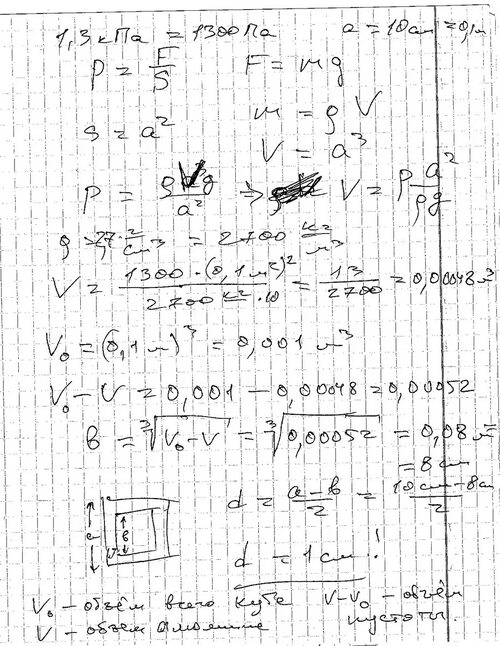 1,3 кПа = 1300 Па a = 10 см = 0,1 м
P = F/S F = mg
m = ρ V
s = a² V = a³
P = ρVg/a² => V = P a²/ρg
ρ = 2,7 г/см³ = 2700 кг/м³
V = 1300 · (0,1 м²)²/2700 кг · 10 = 13/2700 = 0,00048 м³
V₀ = (0,1 м)³ = 0,001 м³
V₀ - V = 0,001 - 0,00048 = 0,00052
в = ³√V₀-V = ³√0,00052 = 0,08 м
= 8 см
d = a-в/2 = 10см-8см/2
a в
d = 1 см!
V₀ - объём всего куба V-V₀ - объём
V - объём алюминие пустоты.